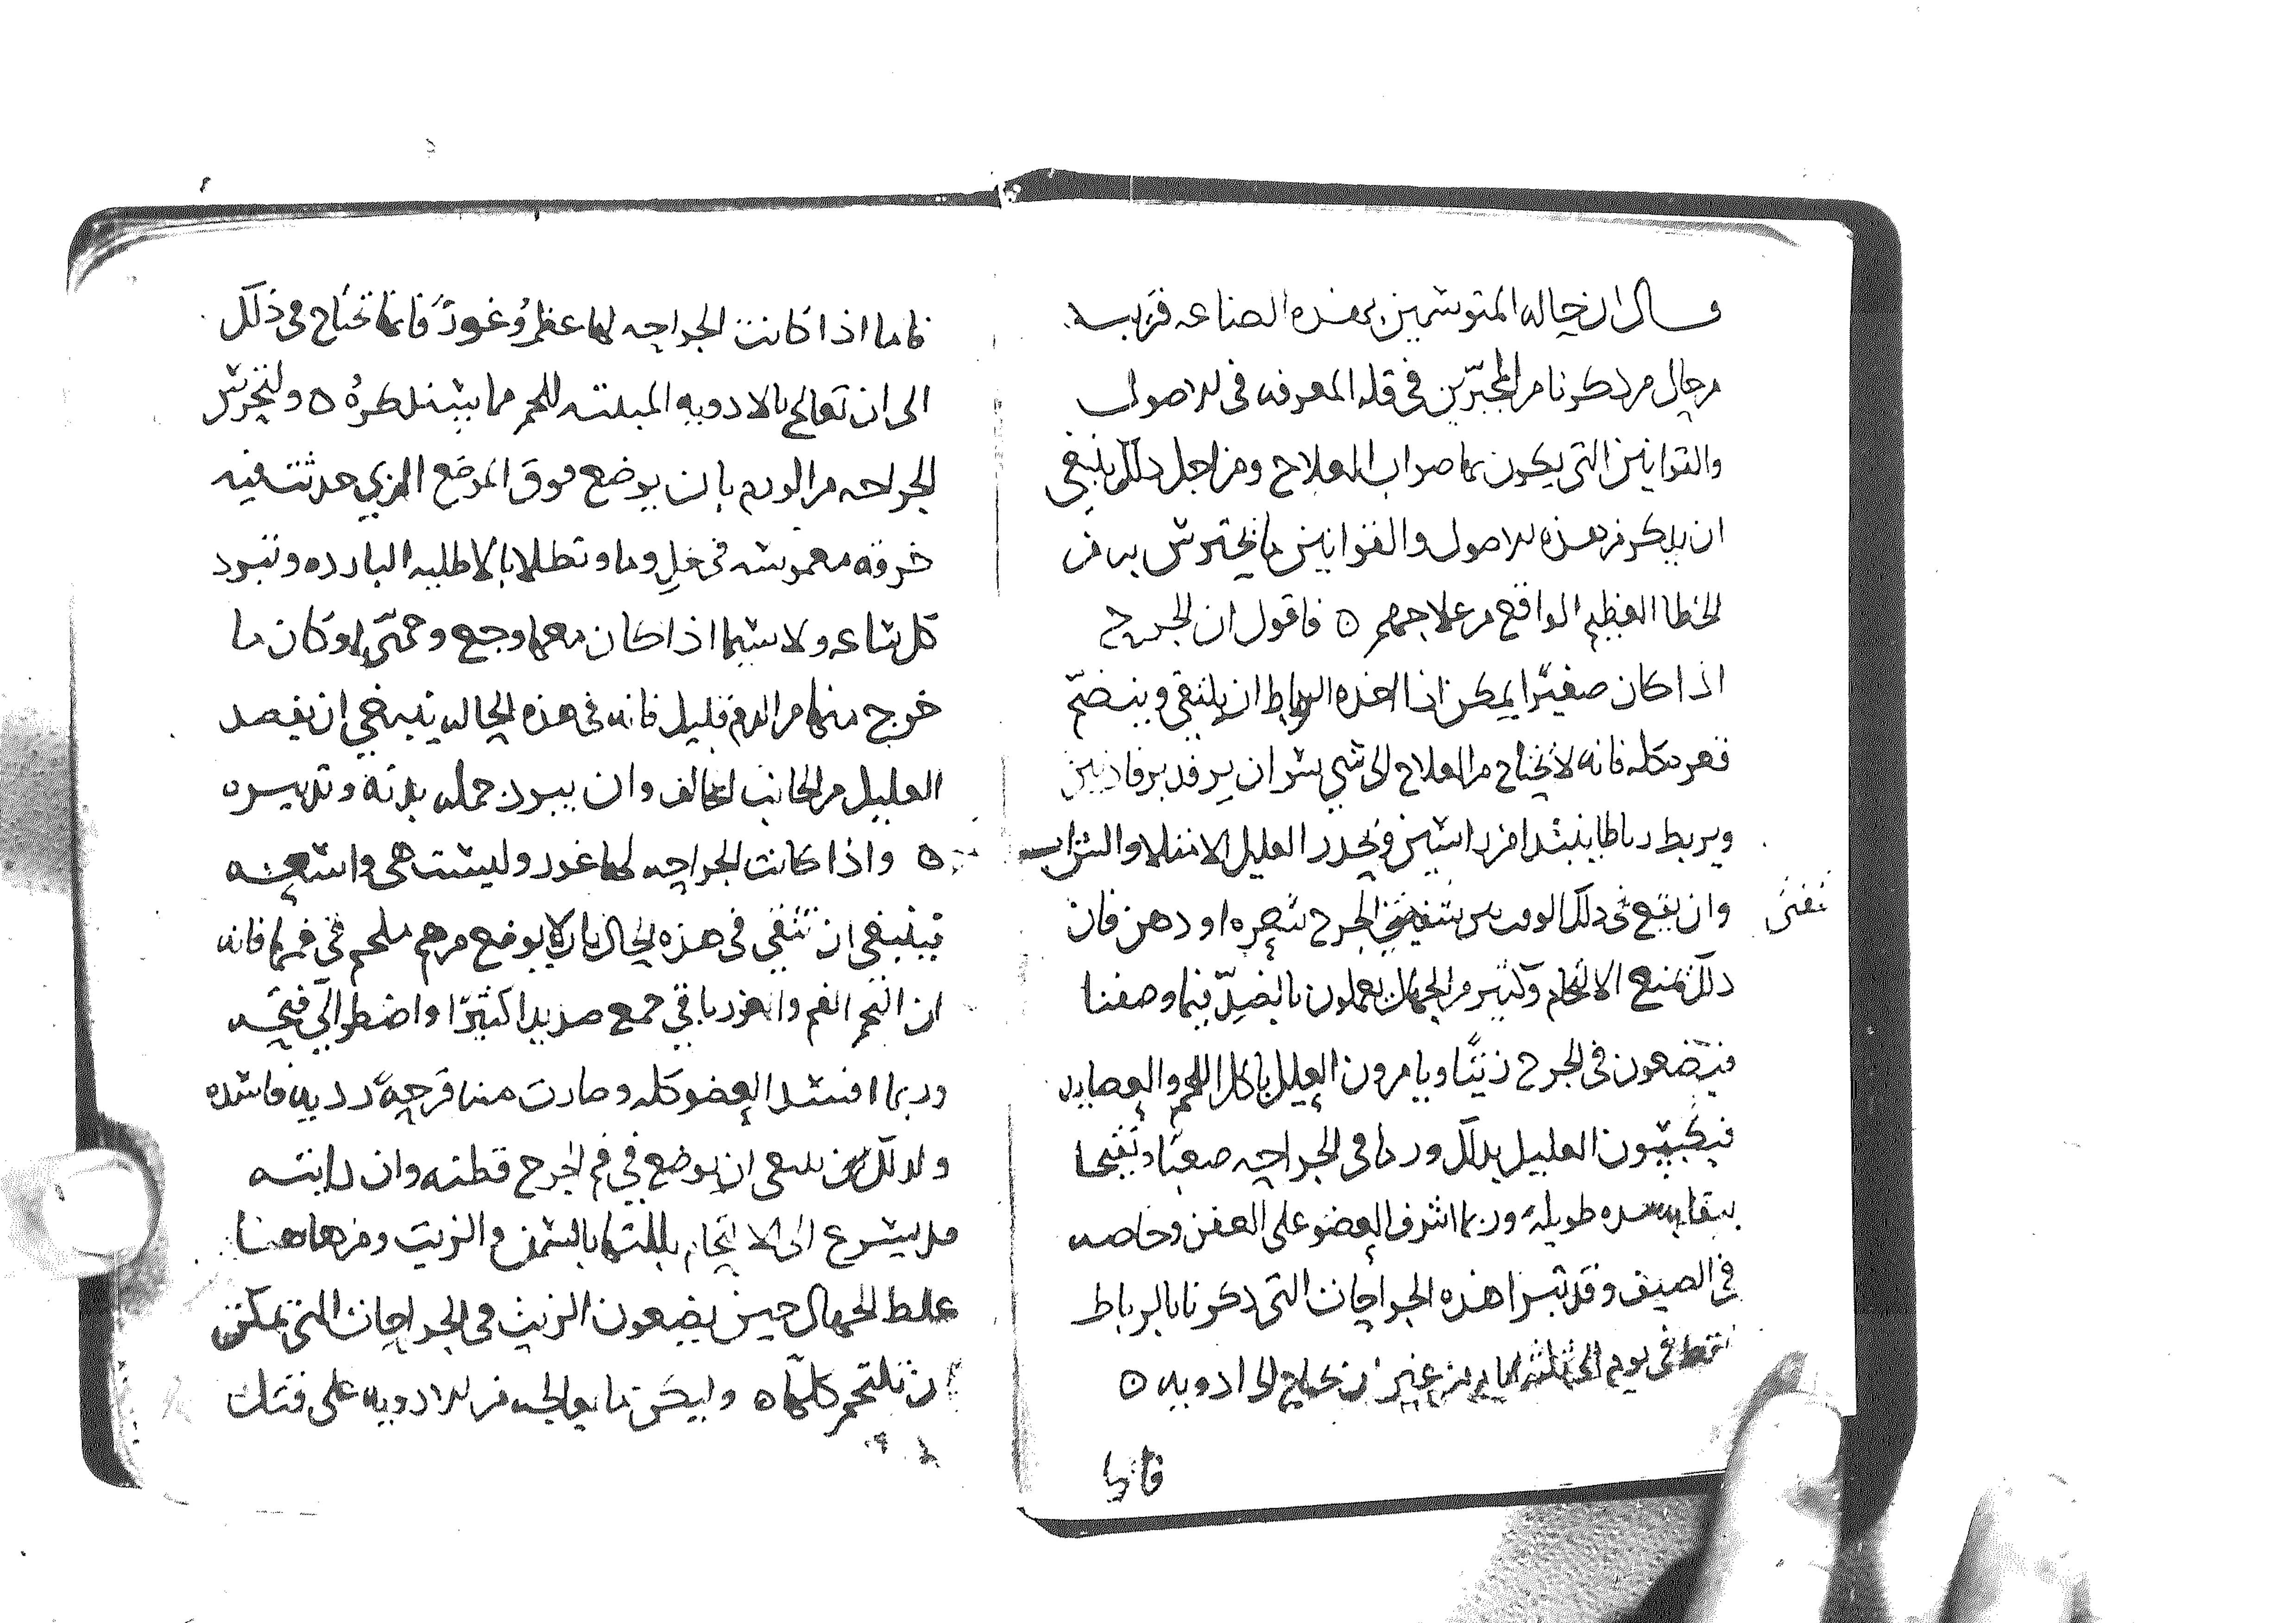 قال ان حاله المتوسمين بهذه الصناعه قريبه
من حال من ذكرنا من المجبّرين في قله المعرفه في الاصول
والقوانين التي يكون بها صواب العلاج ومن اجل ذلك ينبغي
ان يذكر من هذه الاصول والقوانين ما يحترس به من
الخطا العظيم الواقع من علاجهم ه فاقول ان الجرح
اذا كان صغيرًا يمكن اذا اخذه الرباط ان يلتقي وينضمّ
قعره كله فانه لا يحتاج من العلاج الى شي سوى ان يرفد برفادتين
ويربط رباطا يبتدا من راسين ويحذر العليل الامتلاء والشراب
وان يقع في ذلك الوقت بين شفتي الجرح شعره او دهن فان
ذلك يمنع الالتحام وكثير من الجهال يعملون بالضدّ فيما وصفنا
فيضعون في الجرح زيتًا ويامرون العليل باكل اللحم والعصايد
فيكسبون العليل بذلك ورما في الجراحه صعبًا وتقيحا
يبقا به مده طويلة وربما اشرف العضو على العفن وخاصه
في الصيف وقد تبرا هذه الجراحات التي ذكرنا بالرباط
فقط في يوم الى ثلثه ايام من غير ان يحتاج الى ادويه ه
فاما
فاما اذا كانت الجراحه لها عظمٌ وغورٌ فانها تحتاج في ذلك
الى ان تعالج بالادويه المنبته للحم مما سنذكرهُ ه ولتحرس
الجراحه من الورم بان يوضع فوق الموضع الذي حدثت فيه
خرقه مغموسه في خلٍ وما وتطلا بالاطليه البارده وتبرد
كل ساعه ولا سيما اذا كان معها وجع وحمّى او كان ما
خرج منها من الدم قليل فانه في هذه الحاله ينبغي ان يفصد
العليل من الجانب المخالف وان يبرد جمله بدنه وتدبيره
ه واذا كانت الجراحه لها غور وليست هي واسعه
فينبغي ان تتقي في هذه الحال بان لا يوضع مرهم ملحم في فمها فانه
ان التحم الفم والغور باقي جمع صديدا كثيرًا واضطر الى فتحه
وربما افسد العضو كله وصارت منه قرحهً رديه فاسده
ولذلك ينبغي ان يوضع في فم الجرح قطنه وان رايته
قد يسرع الى الالتحام بللتها بالسمن والزيت ومن هاهنا
غلط الجهال حين يضعون الزيت في الجراحات التي يمكن
ان تلتحم كلها ه وليكن ما يعالجه من الادويه على فتك